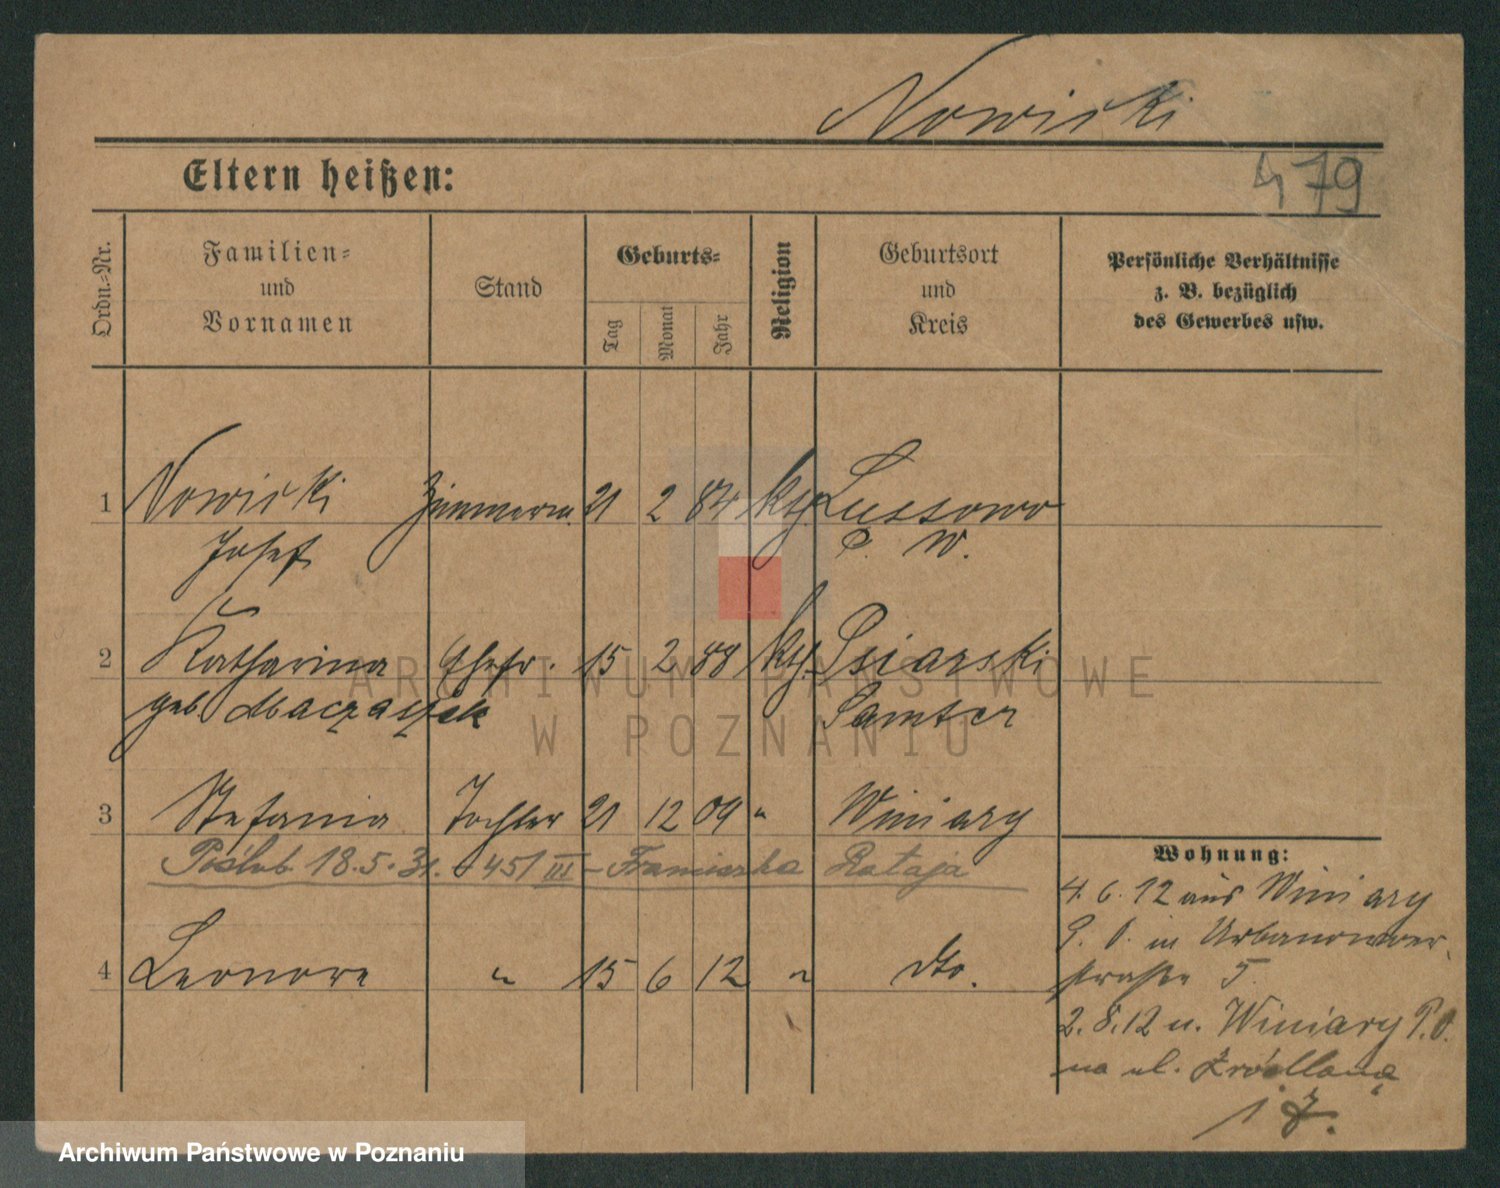 Nowicki
479
Eltern heißen:
Ordn.-Nr.
Familien-
und
Vornamen
Stand
Geburts-
Tag
Monat
Jahr
Religion
Geburtsort
und
Kreis
Persönliche Verhältnisse
z. B. bezüglich
des Gewerbes usw.
1 Nowicki Zimmerm. 21 2 84 kth. Lussowo
Josef P. W.
2 Katharina Ehefr. 15 2 88 kth. Psiarski
geb. Samter
3 Stefania Tochter 21 12 09 " Winiary
Poślub. 18.5.31. 451 III – Franciszka Rataja
4 Leonore " 15 6 12 " dto.
Wohnung:
4. 6. 12 aus Winiary
P. O. in Urbanower
straße 5
2. 8. 12 n. Winiary P. O.
na ul. Źródlaną
ARCHIWUM PAŃSTWOWE
W POZNANIU
Archiwum Państwowe w Poznaniu